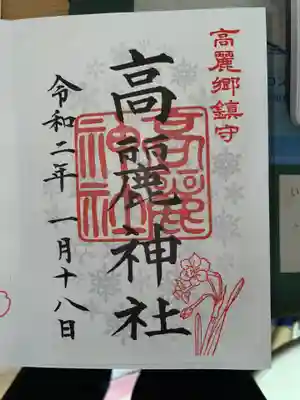 高麗郷鎮守
高麗神社
令和二年 一月十八日
高麗
神社